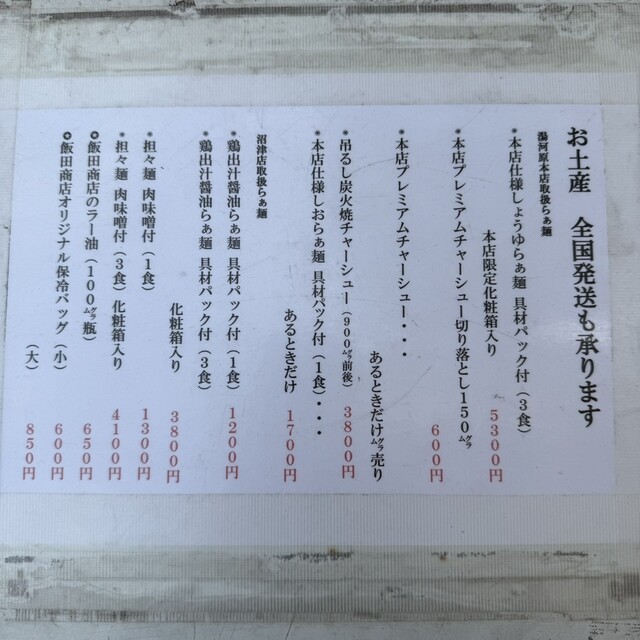 お土産　全国発送も承ります
湯河原本店取扱らぁ麺
＊本店仕様しょうゆらぁ麺 具材パック付（3食）
本店限定化粧箱入り　5300円
＊本店プレミアムチャーシュー切り落とし150㌘
600円
＊本店プレミアムチャーシュー・・・
あるときだけ㌘売り
＊吊るし炭火焼チャーシュー（900㌘前後）　3800円
＊本店仕様しおらぁ麺 具材パック付（1食）・・・
あるときだけ　1700円
沼津店取扱らぁ麺
＊鶏出汁醤油らぁ麺 具材パック付（1食）　1200円
＊鶏出汁醤油らぁ麺 具材パック付（3食）
化粧箱入り　3800円
＊担々麺 肉味噌付（1食）　1300円
＊担々麺 肉味噌付（3食）化粧箱入り　4100円
✪飯田商店のラー油（100㌘瓶）　650円
✪飯田商店オリジナル保冷バッグ（小）　600円
（大）　850円